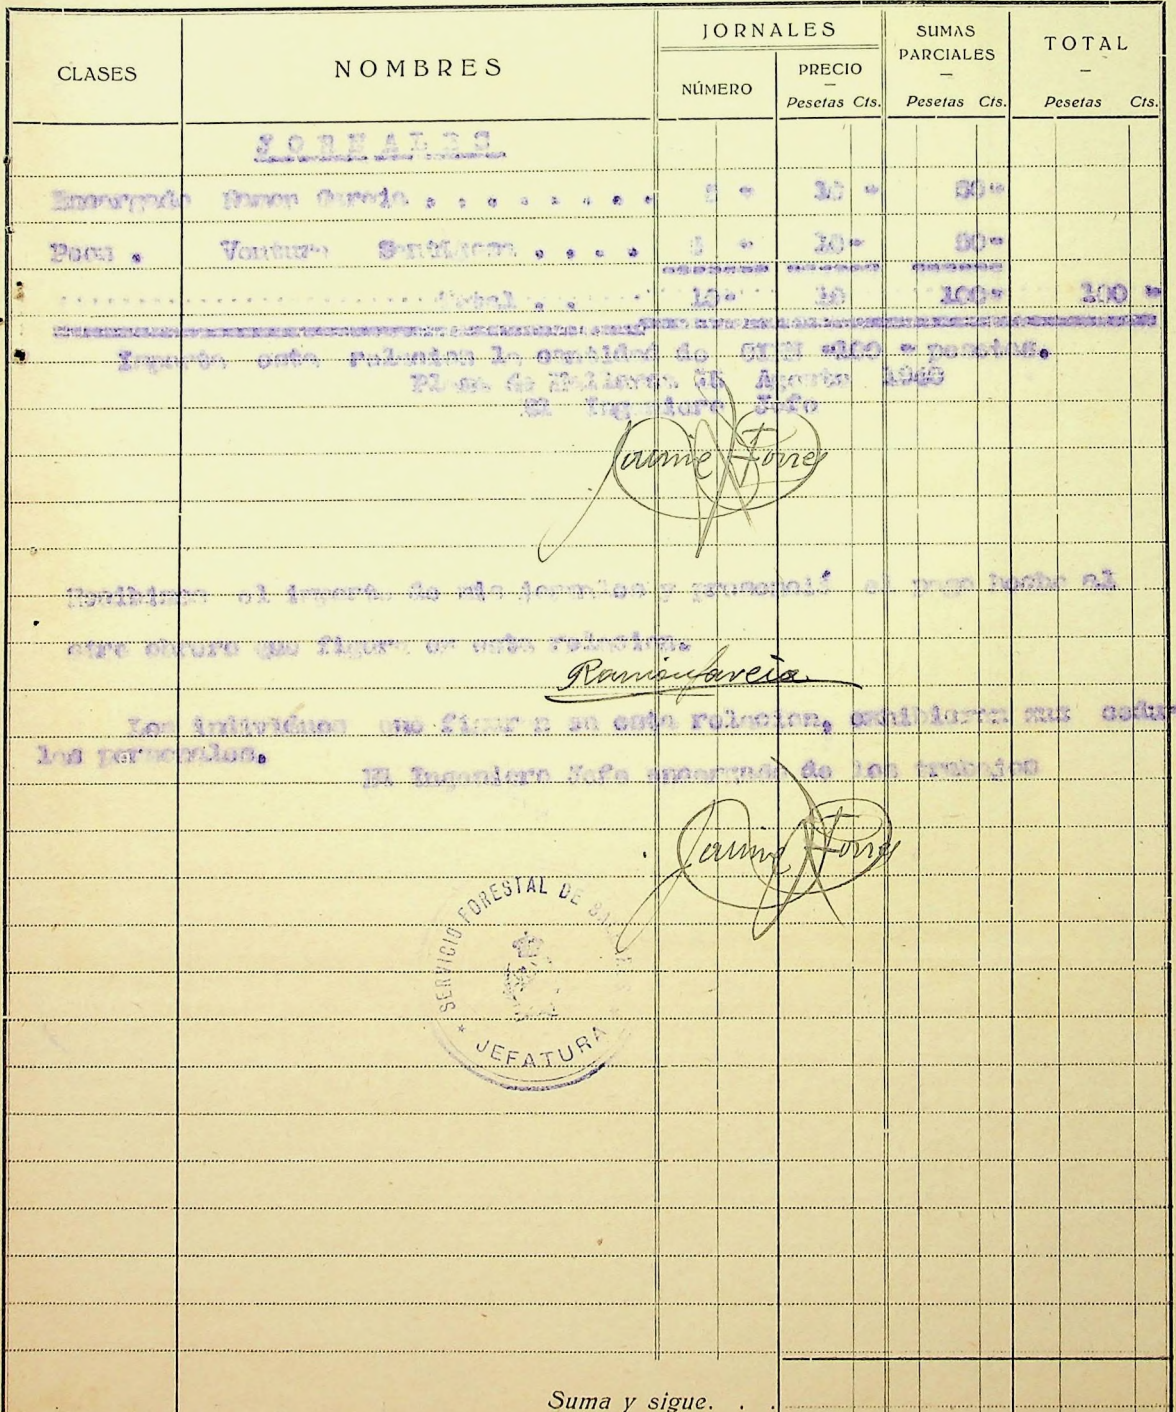 CLASES NOMBRES JORNALES SUMAS PARCIALES TOTAL
NÚMERO PRECIO
Pesetas Cts. Pesetas Cts. Pesetas Cts.
JORNALES
Encargado Ramon Garcia . . . . . . . . . 5 - 10 - 50-
Peon . Ventura . . . . 5 - 10- 50-
Total . . 10- 10 100- 100 -
Importa esta relacion la cantidad de CIEN -100 - pesetas.
Palma de Mallorca Agosto
El Ingeniero Jefe
Jaume Torres
el importe de mis jornales y presencié el pago hecho al
otro obrero que figura en esta relacion.
Ramon Garcia
Los individuos que figuran en esta relacion, exhibieron sus cedu-
las personales.
El Ingeniero Jefe encargado de los trabajos
Jaume Torres
SERVICIO FORESTAL DE
JEFATURA
Suma y sigue. . .